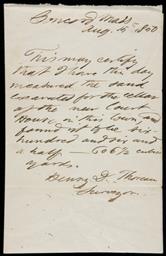 Concord Mass
Aug. 15th 1850
This may certify
that I have this day
measured the sand
excavated for the cellar
of the new Court
House in this town, and
found it to be six
hundred and six and
a half — 606½ cubic
yards.
Henry D. Thoreau
Surveyor.